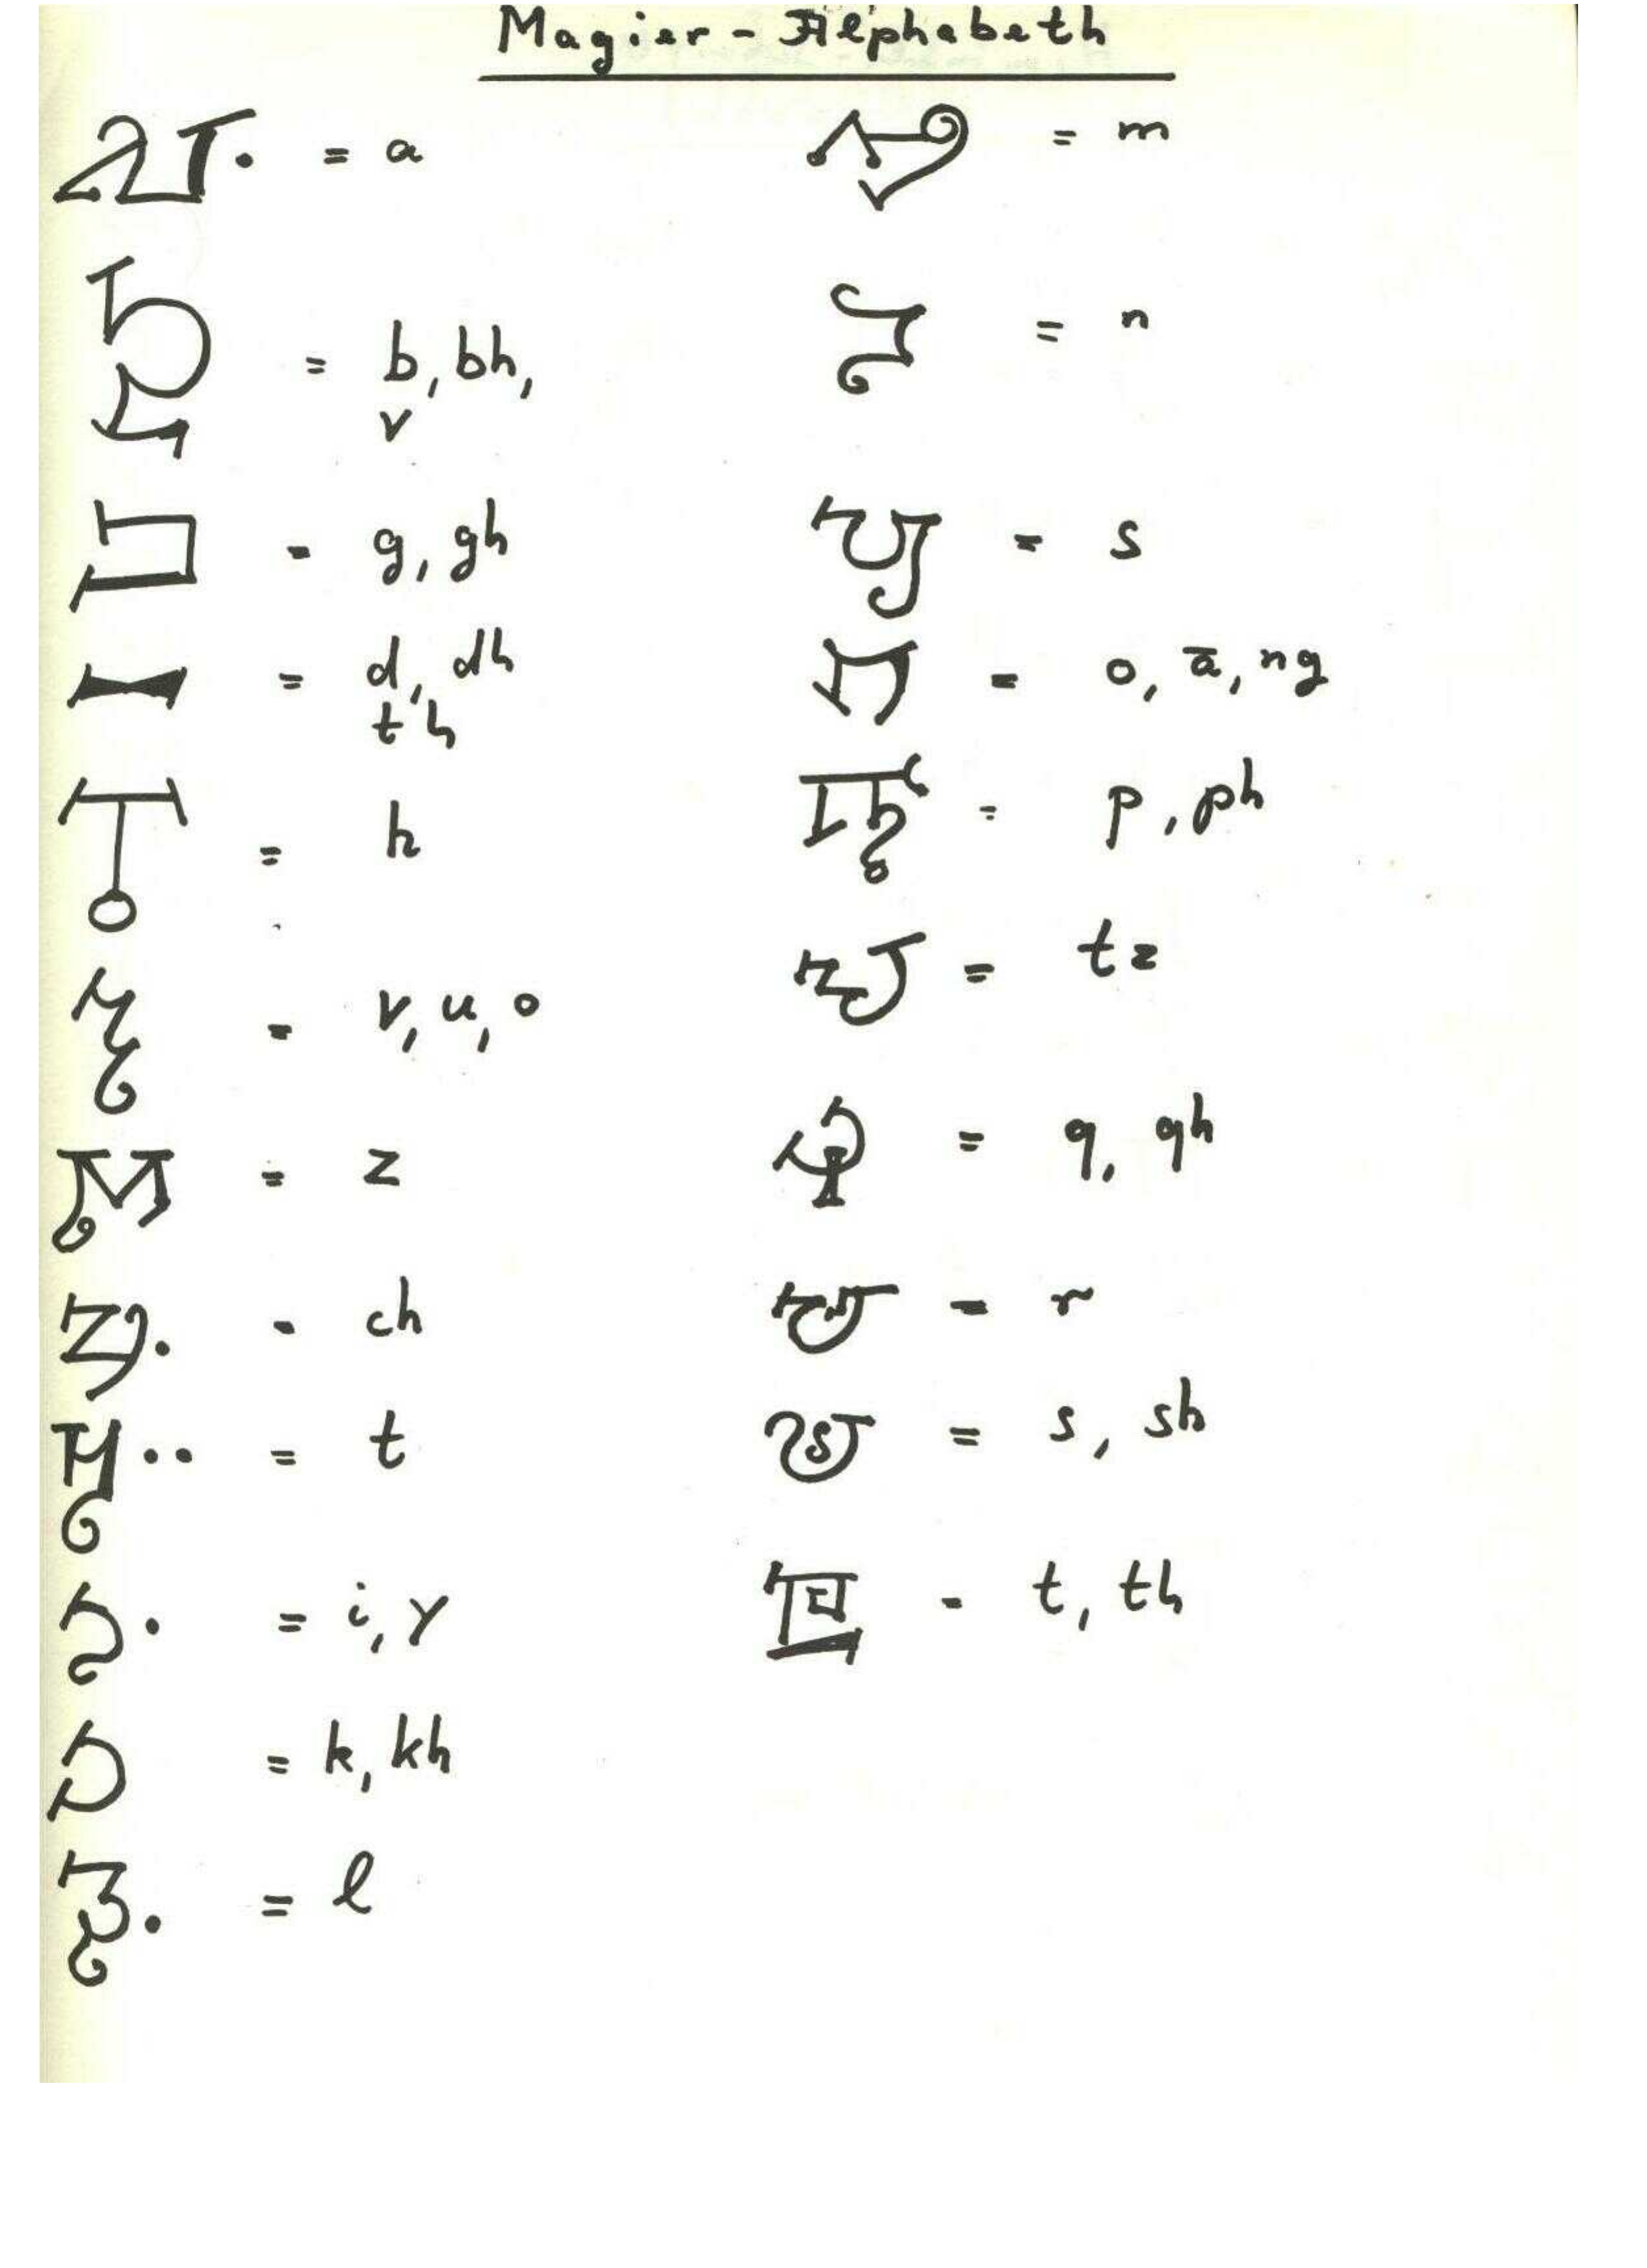 Magier - Alphabeth
= a
= b, bh,
v
= g, gh
= d, dh
t'h
= h
= v, u, o
= z
= ch
= t
= i, y
= k, kh
= l
= m
= n
= s
= o, ā, ng
= p, ph
= tz
= q, qh
= r
= s, sh
= t, th